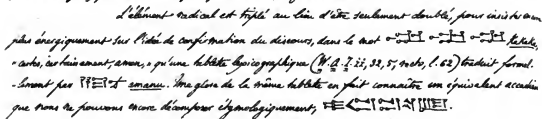 L'élément radical est triplé au lieu d'être seulement doublé, pour insister en
plus énergiquement sur l'idée de confirmation du discours, dans le mot kakaka,
« certes, certainement, amen, » qu'une tablette lexicographique (W. A. I. ii, 32, 5, recto, l. 62) traduit formel-
-lement par emanu. Une glose de la même tablette en fait connaître un équivalent accadien
que nous ne pouvons encore décomposer étymologiquement,